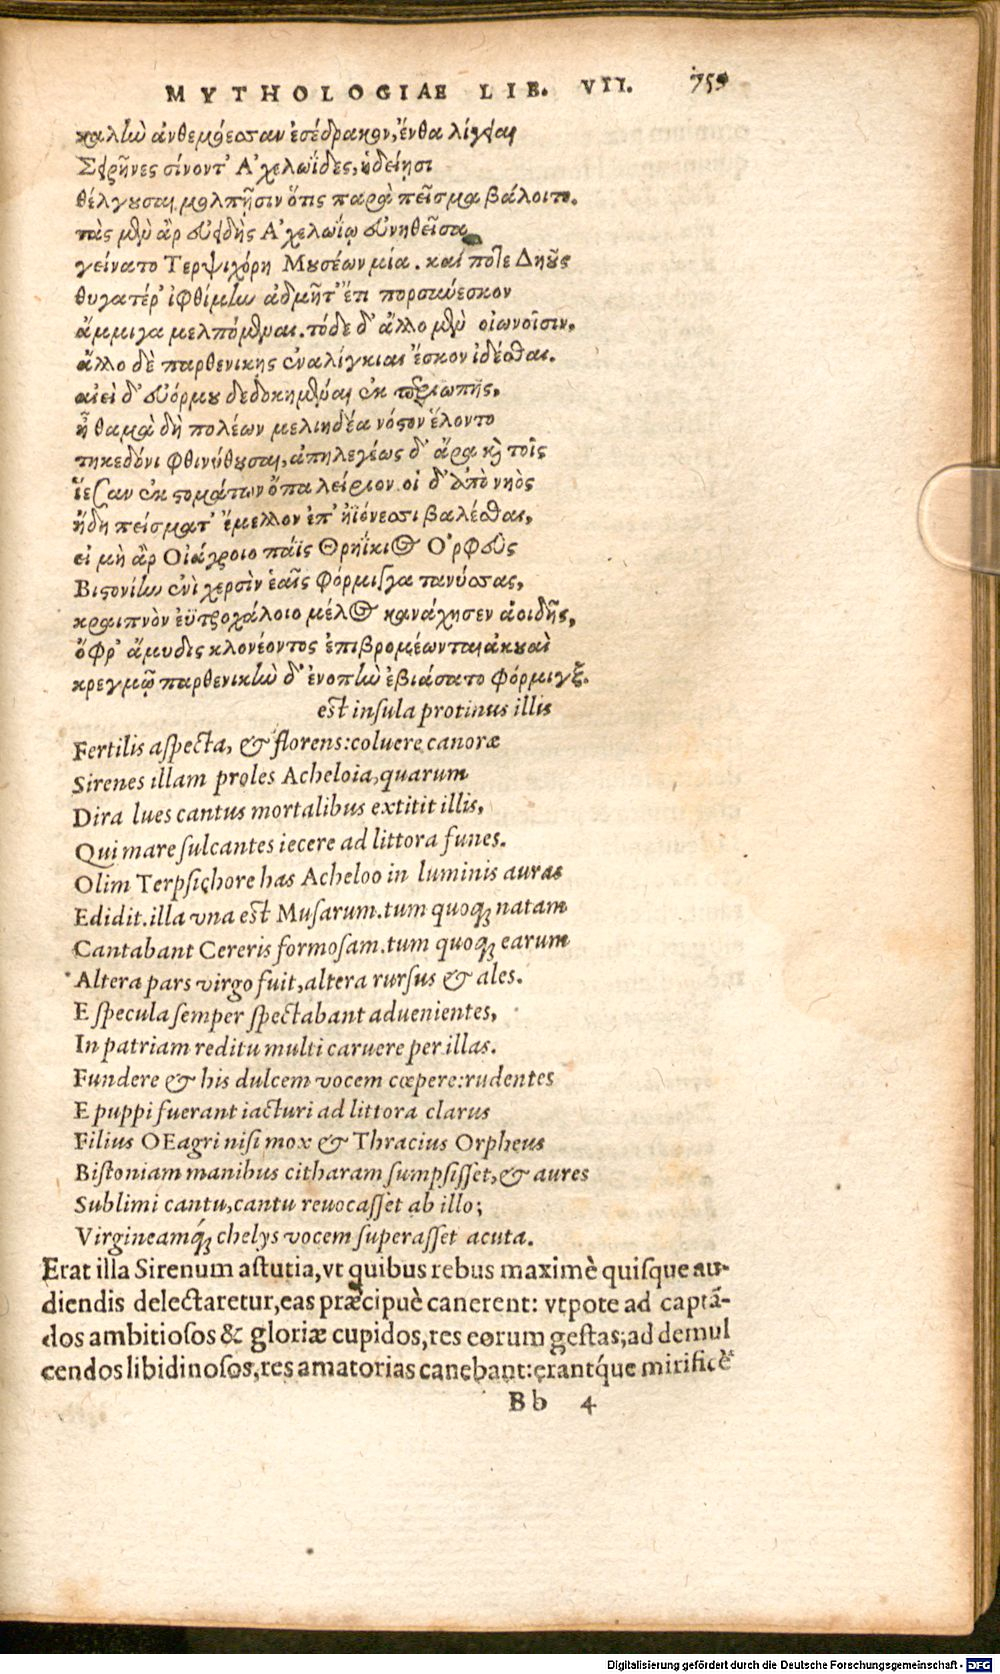 MYTHOLOGIAE LIB. VII. 759
καλὴν ἀνθεμόεσσαν ἐσέδρακον, ἔνθα λίγειαι
Σειρῆνες σίνοντ' Ἀχελωΐδες, ἡδείῃσι
θέλγουσαι μολπῇσιν ὅτις παρὰ πεῖσμα βάλοιτο.
τὰς μὲν ἂρ εὐειδὴς Ἀχελωΐῳ εὐνηθεῖσα
γείνατο Τερψιχόρη Μουσέων μία. καί ποτε Δηοῦς
θυγατέρ' ἰφθίμην ἀδμῆτ' ἔτι πορσαύεσκον
ἄμμιγα μελπόμεναι. τόδε δ' ἄλλο μὲν οἰωνοῖσιν,
ἄλλο δὲ παρθενικῆς ἐναλίγκιαι ἔσκον ἰδέσθαι.
αἰεὶ δ' εὐόρμου δεδοκημέναι ἐκ περιωπῆς,
ἦ θαμὰ δὴ πολέων μελιηδέα νόστον ἕλοντο
τηκεδόνι φθινύθουσαι, ἀπηλεγέως δ' ἄρα καὶ τοῖς
ἵεσαν ἐκ στομάτων ὄπα λείριον. οἱ δ' ἀπὸ νηὸς
ἤδη πείσματ' ἔμελλον ἐπ' ἠϊόνεσσι βαλέσθαι,
εἰ μὴ ἂρ Οἰάγροιο πάϊς Θρηΐκιος Ὀρφεὺς
Βιστονίην ἐνὶ χερσὶν ἑαῖς φόρμιγγα τανύσσας,
κραιπνὸν ἐϋτροχάλοιο μέλος κανάχησεν ἀοιδῆς,
ὄφρ' ἄμυδις κλονέοντος ἐπιβρομέωνται ἀκουαὶ
κρεγμῷ παρθενικὴν δ' ἐνοπὴν ἐβιάσατο φόρμιγξ.
est insula protinus illis
Fertilis aspecta, & florens: coluere canoræ
Sirenes illam proles Acheloia, quarum
Dira lues cantus mortalibus extitit illis,
Qui mare sulcantes iecere ad littora funes.
Olim Terpsichore has Acheloo in luminis auras
Edidit. illa vna est Musarum. tum quoq; natam
Cantabant Cereris formosam. tum quoq; earum
Altera pars virgo fuit, altera rursus & ales.
E specula semper spectabant aduenientes,
In patriam reditu multi caruere per illas.
Fundere & his dulcem vocem cœpere: rudentes
E puppi fuerant iacturi ad littora clarus
Filius OEagri nisi mox & Thracius Orpheus
Bistoniam manibus citharam sumpsisset, & aures
Sublimi cantu, cantu reuocasset ab illo;
Virgineamq́; chelys vocem superasset acuta.
Erat illa Sirenum astutia, vt quibus rebus maximè quisque au-
diendis delectaretur, eas præcipuè canerent: vtpote ad captã-
dos ambitiosos & gloriæ cupidos, res eorum gestas; ad demul
cendos libidinosos, res amatorias canebant: erantq́ue mirificè
Bb 4
Digitalisierung gefördert durch die Deutsche Forschungsgemeinschaft - DFG